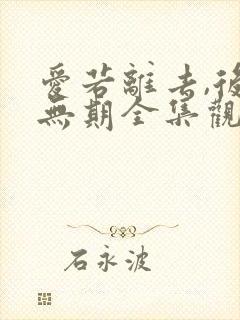 愛若離去,後
無期全集觀
石永波